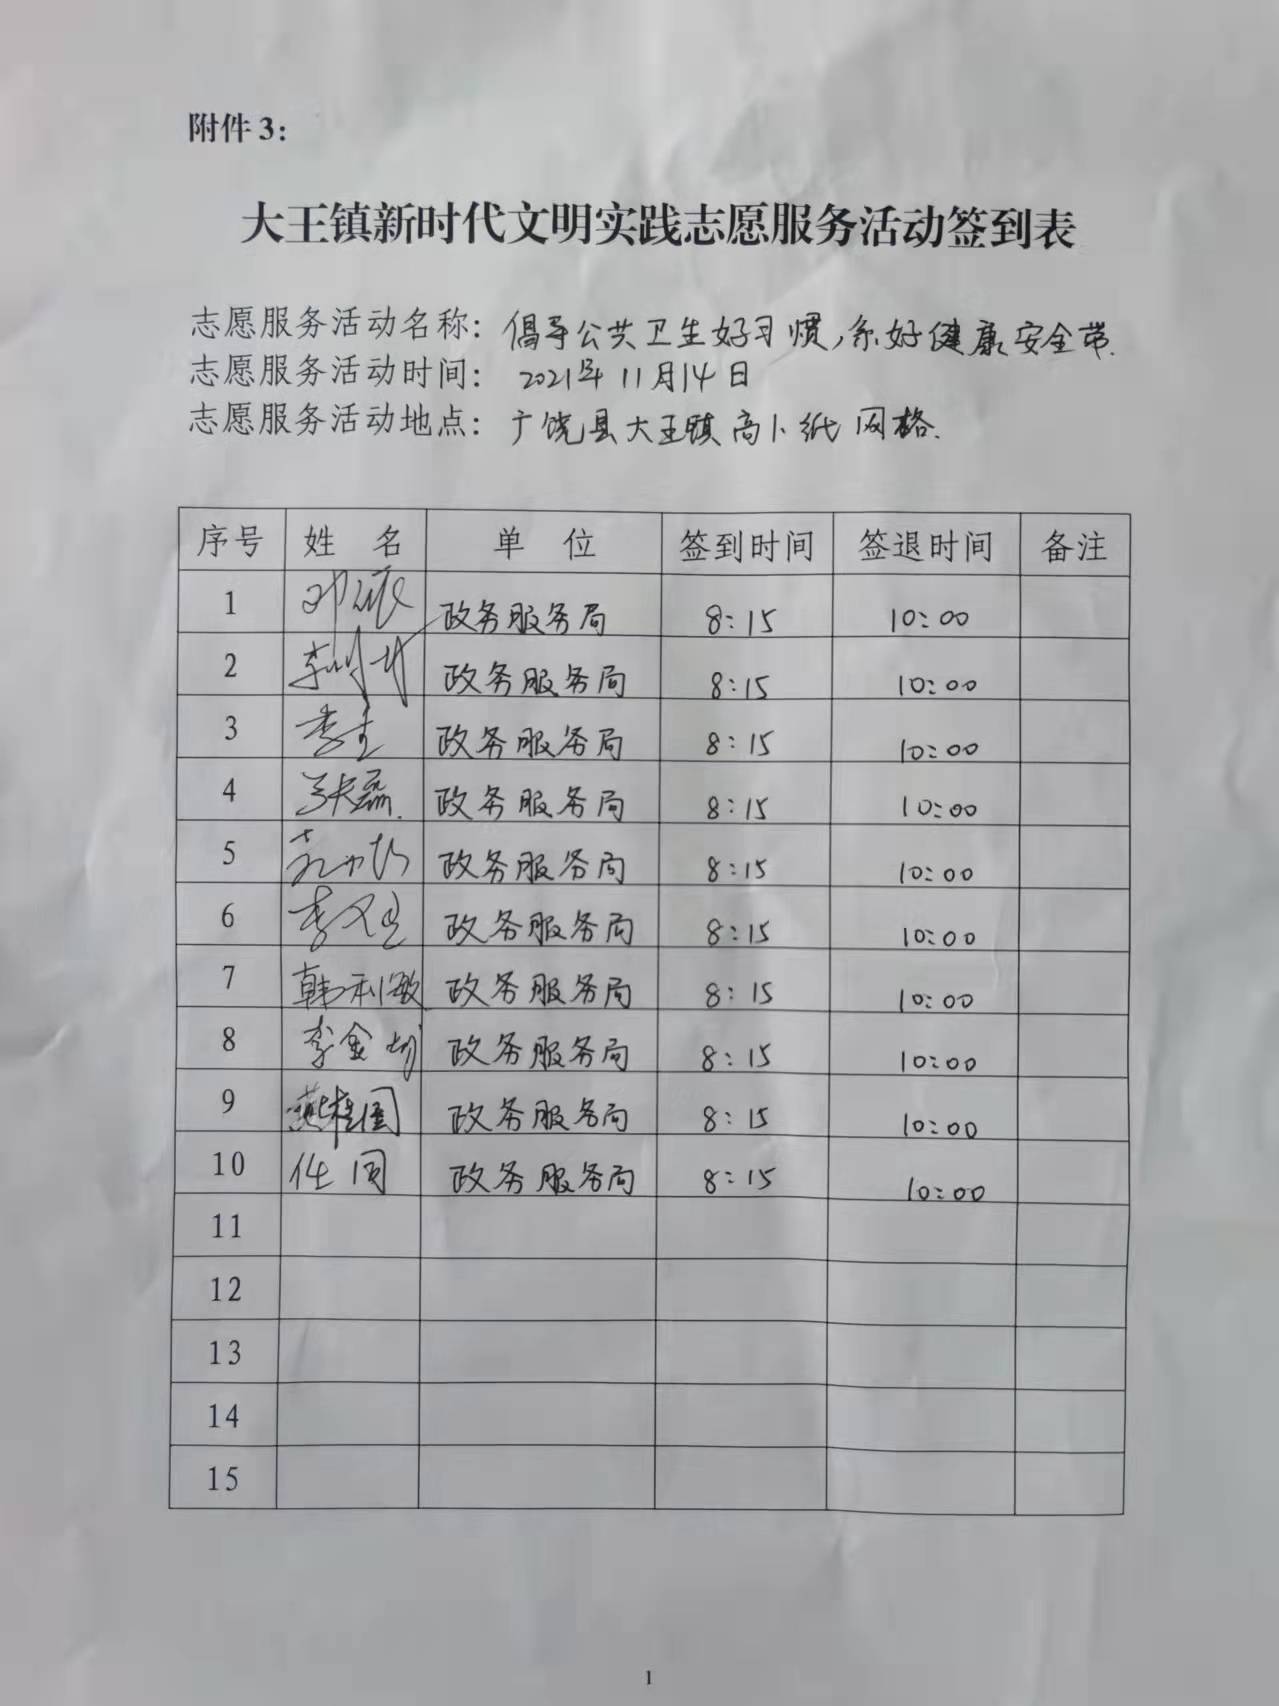 附件 3:
大王镇新时代文明实践志愿服务活动签到表
志愿服务活动名称: 倡导公共卫生好习惯,系好健康安全带.
志愿服务活动时间: 2021年11月14日
志愿服务活动地点: 广饶县大王镇高卜纸网格.
序号 姓 名 单 位 签到时间 签退时间 备注
1 政务服务局 8:15 10:00
2 李 政务服务局 8:15 10:00
3 李 政务服务局 8:15 10:00
4 张磊 政务服务局 8:15 10:00
5 政务服务局 8:15 10:00
6 李 政务服务局 8:15 10:00
7 韩利敏 政务服务局 8:15 10:00
8 李金 政务服务局 8:15 10:00
9 燕桂国 政务服务局 8:15 10:00
10 任同 政务服务局 8:15 10:00
11
12
13
14
15
1